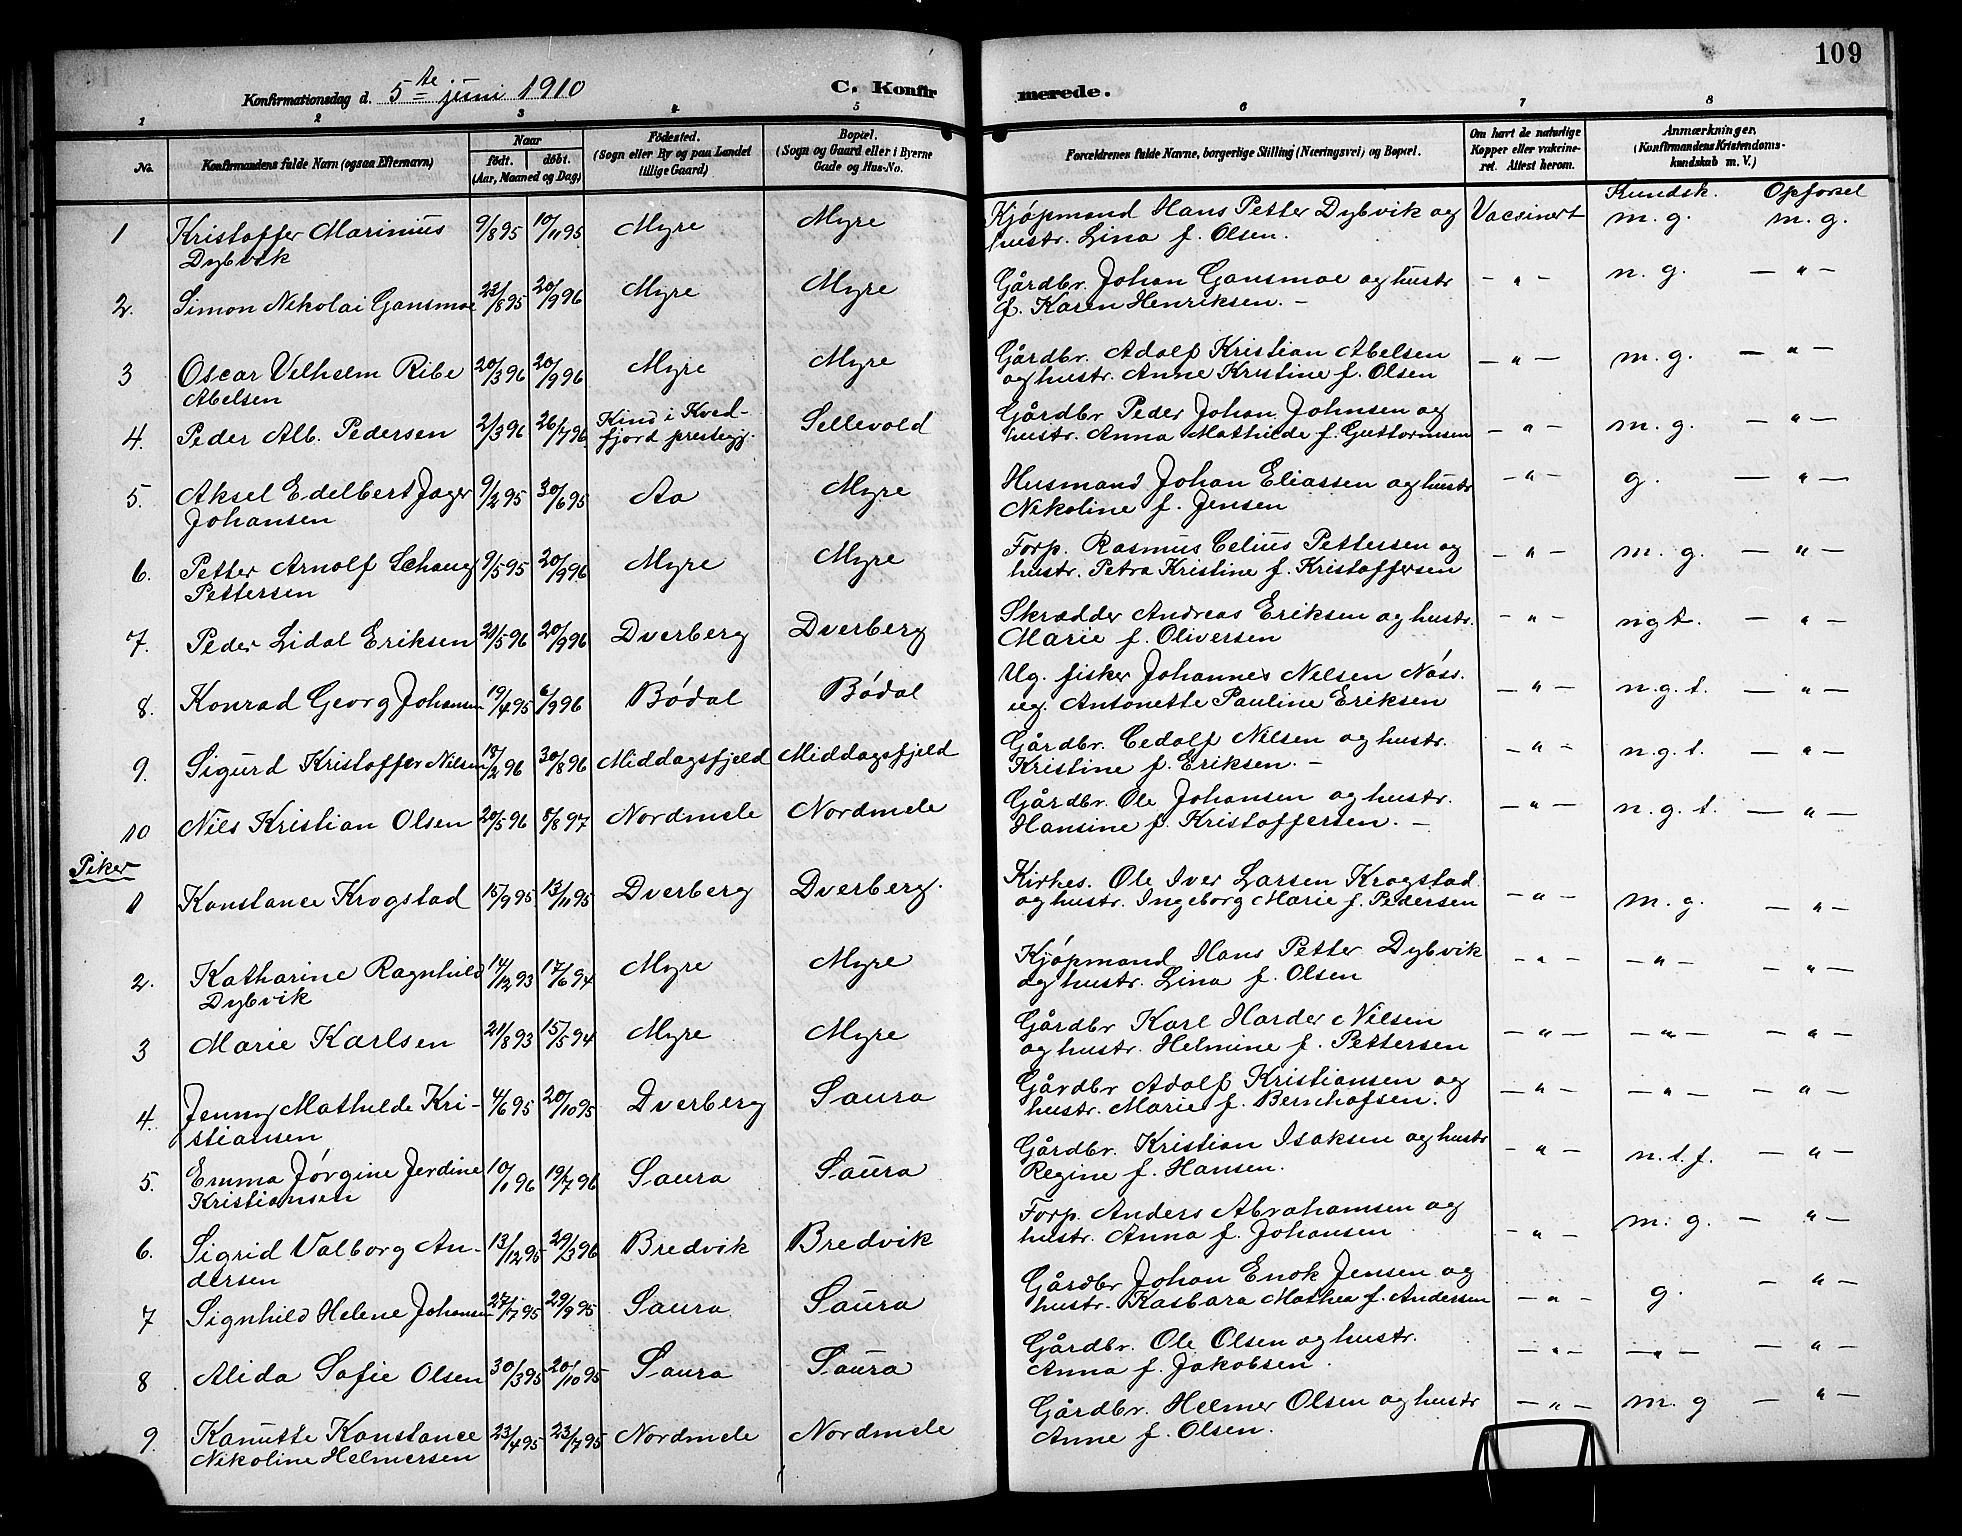 109
Konfirmationsdag d. 5te juni 1910 C. Konfirmerede.
1 2 3 4 5 6 7 8
No. Konfirmandens fulde Navn (ogsaa Efternavn) Naar født. døbt. (Aar, Maaned og Dag) Fødested. (Sogn eller By og paa Landet tillige Gaard) Bopæl. (Sogn og Gaard eller i Byerne Gade og Hus-No. Forældrenes fulde Navne, borgerlige Stilling (Næringsvei) og Bopæl. Om havt de naturlige Kopper eller vakcineret. Attest herom. Anmærkninger. (Konfirmandens Kristendomskundskab m. V.)
Kundsk. Opførsel
1 Kristoffer Marinius 9/8 95 10/11 95 Myre Myre Kjøpmand Hans Petter Dybvik og Vacsinert m. g. m. g.
Dybvik hustr. Lina f. Olsen.
2. Simon Nikolai Gansmoe 23/8 95 20/9 96 Myre Myre Gårdbr. Johan Gansmoe og hustr — " — n. g. — " —
f. Karen Henriksen. —
3 Oscar Vilhelm Ribe 20/3 96 20/9 96 Myre Myre Gårdbr. Adolf Kristian Abelsen — " — m. g. — " —
Abelsen og hustr. Anne Kristine f. Olsen
4. Peder Alb. Pedersen 2/3 96 26/7 96 Kind i Kvedfjord prestegj. Sellevold Gårdbr Peder Johan Johnsen og — " — m. g. — " —
hustr. Anna Mathilde f. Guttormsen
5. Aksel Edelbert Jager 9/2 95 30/6 95 Aa Myre Husmand Johan Eliassen og hustr — " — g. — " —
Johansen Nikoline f. Jensen
6. Petter Arnolf Schong 9/5 95 20/9 96 Myre Myre Forp. Rasmus Celius Pettersen og — " — m. g. — " —
Pettersen hustr. Petra Kristine f. Kristoffersen
7. Peder Lidal Eriksen 21/5 96 20/9 96 Dverberg Dverberg Skrædder Andreas Eriksen og hustr. — " — ngt. — " —
Marie f. Oliversen
8. Konrad Georg Johansen 19/4 95 6/9 96 Bødal Bødal Ug. fisker Johannes Nilsen Nøss. — " — n. g. t. — " —
ug. Antonette Pauline Eriksen
9. Sigurd Kristoffer Nilsen 18/2 96 30/8 96 Middagsfjeld Middagsfjeld Gårdbr. Cedolf Nilsen og hustr. — " — n. g. t. — " —
Kristine f. Eriksen. —
10 Nils Kristian Olsen 20/5 96 8/8 97 Nordmele Nordmele Gårdbr. Ole Johansen og hustr. — " — n. g. t. — " —
Hansine f. Kristoffersen. —
Piker
1 Konstance Krogstad 15/9 95 13/11 95 Dverberg Dverberg. Kirkes. Ole Iver Larsen Krogstad — " — m. g. — " —
og hustr. Ingeborg Marie f. Pedersen
2. Katharine Ragnhild 14/12 93 17/6 94 Myre Myre Kjøpmand Hans Petter Dybvik — " — — " — — " —
Dybvik og hustr. Lina f. Olsen
3 Marie Karlsen 21/8 93 15/5 94 Myre Myre Gårdbr Karl Harder Nilsen — " — — " — — " —
og hustr. Helmine f. Pettersen
4. Jenny Mathilde Kri- 4/6 95 20/10 95 Dverberg Saura Gårdbr Adolf Kristiansen og — " — — " — — " —
stiansen hustr. Marie f. Bernhofsen.
5. Emma Jørgine Jerdine 10/1 96 19/7 96 Saura Saura Gårdbr. Kristian Isaksen og hustr — " — n. t. f. — " —
Kristiansen Regine f. Hansen.
6. Sigrid Valborg An- 13/12 95 29/3 96 Bredvik Bredvik Forp. Anders Abrahamsen og — " — m. g. — " —
dersen hustr. Anna f. Johansen
7 Signhild Helene Johansen 27/7 95 29/9 95 Saura Saura Gårdbr Johan Enok Jensen og — " — g. — " —
hustr. Kasbara Mathea f. Andersen
8 Alida Sofie Olsen 30/3 95 20/10 95 Saura Saura Gårdbr. Ole Olsen og hustr. — " — — " — — " —
Anna f. Jakobsen.
9. Kanutte Konstance 23/4 95 23/7 95 Nordmele Nordmele Gårdbr. Helmer Olsen og hustr — " — m. g — " —
Nikoline Helmersen Anne f. Olsen.